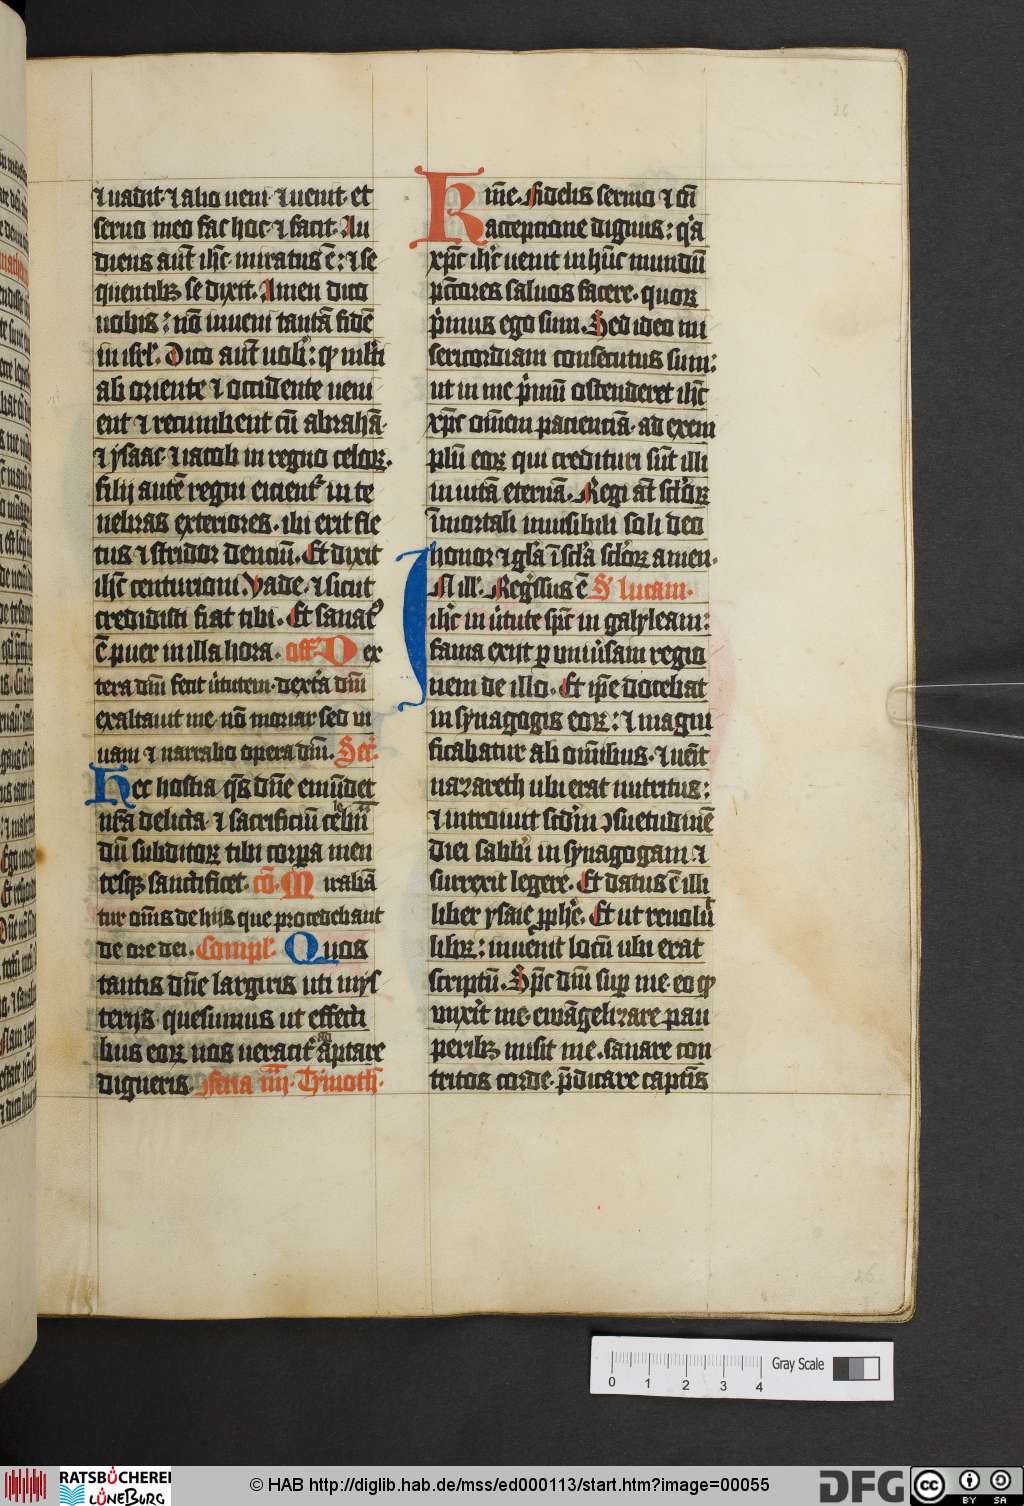 ⁊ uadit · ⁊ alio ueni · ⁊ uenit · et
seruo meo fac hoc · ⁊ facit · Au
diens aut̄ ih̄c miratus ē : ⁊ se
quentibꝫ se dixit . Amen dico
uobis : nō inueni tantā fidē
in isrl̓ . Dico aut̄ uob̓ : ꝙ multi
ab oriente ⁊ occidente ueni
ent ⁊ recumbent cū abrahā ·
⁊ ysaac · ⁊ iacob in regno celoꝝ .
filij autē regni eicient᷑ in te
nebras exteriores . ibi erit fle
tus ⁊ stridor denciū . Et dixit
ih̄c centurioni . Vade · ⁊ sicut
credidisti fiat tibi . Et sanatꝰ
ē puer in illa hora . off̄ Dex
tera dn̄i fecit u̓tutem · dext̓a dn̄i
exaltauit me · nō moriar sed ui
uam ⁊ narrabo opera dn̄i . Secr̄ .
Hec hostia qs̄ dn̄e emūdet
nr̄a delicta · ⁊ sacrificiū celebn̄
dū subditoꝝ tibi corpa men
tesqꝫ sanctificet · cō · Mirabā
tur om̄s de hiis que procedebant
de ore dei . Compl̓ . Quos
tantis dn̄e largiris uti mys
terijs · quesumus ut effecti
bus eoꝝ nos ueracit᷑ aptare
digneris . feria iiij · Tymoth̄ ·
Kr̄me . Fidelis sermo ⁊ om̄i
acceptione dignus : q̓a
xp̄c ih̄c uenit in hūc mundū
pctōres saluos facere · quoꝝ
p̓mus ego sum . Sed ideo mi
sericordiam consecutus sum :
ut in me p̓mū ostenderet ih̄c
xp̄c om̄em pacienciā · ad exem
plū eoꝝ qui credituri sūt illi
in uitā eternā . Regi at̄ sc̄loꝝ
īmortali inuisibili soli deo
honor ⁊ gl̄a ī sc̄la sc̄loꝝ amen ·
IN ill̓ . Reg̓ssus ē S̓ lucam .
ih̄c in u̓tute sp̄c in galyleam :
fama exiit ꝑ uniu̓sam regio
nem de illo . Et ip̄e docebat
in synagogis eoꝝ : ⁊ magni
ficabatur ab om̄ibus · ⁊ uēit
nazareth ubi erat nutritus :
⁊ introiuit scd̓m ꝯsuetudinē
diei sabb̓i in synagogam · ⁊
surrexit legere . Et datus ē illi
liber ysaie pphē . Et ut reuoluit
libꝝ : inuēit locū ubi erat
scriptū . Sp̄c dn̄i sup me · eo ꝙ
unxit me · ewāgelizare pau
peribꝫ misit me . sanare con
tritos corde · p̄dicare captiis
26
Gray Scale
0 1 2 3 4
RATSBÜCHEREI LÜNEBURG
© HAB http://diglib.hab.de/mss/ed000113/start.htm?image=00055
DFG
cc BY SA